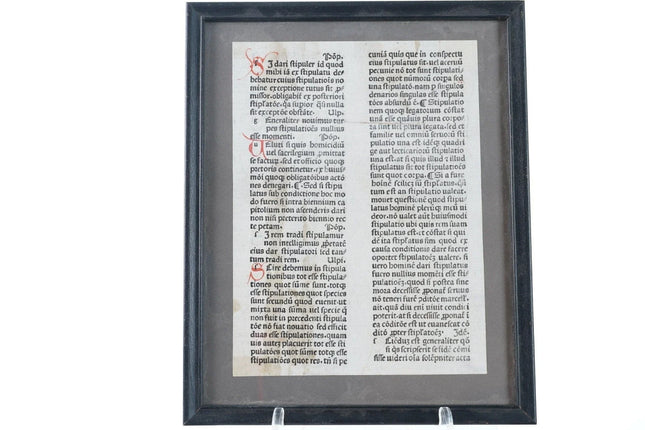 Pōp.
Si dari stipuler id quod
mihi iā ex stipulatu de⸗
bebatur cuius stipulatiōis no
mine exceptione tutus sit ꝓ⸗
missor. obligabit ex posteriori
stipl̄atōe. qa supior q̄si nulla
sit exceptōe obstāte. Ulp.
g eneraliter nouimus tur
pes stipulatiōes nullius
esse momenti. Pōp.
Ueluti si quis homicidiū
uel sacrilegium ꝓmittat
se facturū. sed et officio quoqꝫ
pretoris continetur. ex huius⸗
mōi quoqꝫ obligatōibus actō
nes denegari. ¶ Sed si stipu
latus sub conditione hoc mo
do fuero si intra biennium ca
pitolium non ascenderis dari
non nisi preterito biennio rec
te petam. Pōp.
I rem tradi stipulamur
non intelligimus ꝓprietatē
eius dar stipulatori sed tan⸗
tum tradi rem. Ulpi.
Scire debemus in stipula
tionibus tot esse stipula⸗
tiones quot sūme sunt. totqꝫ
esse stipulationes quot species
sunt secundū quod euenit. ut
mixta una sūma uel specie q̄
non fuit in precedenti stipula
tōe nō fiat nouatio sed efficit
duas esse stipulationes. quam
uis autez placuerit tot esse sti
pulatōes quot sūme totqꝫ esse
stipulatōes quot res. tn̄ si pe
cuniā quis que in conspectu
eius stipulatus sit. uel aceruū
pecunie nō tot sunt stipulati⸗
ones quot nūmorū corpa sed
una stipulatō. nam ꝑ singulos
denarios singulas esse stipula
tōes absurdū ē. ¶ Stipulatio
nem quoqꝫ legatorum cōstat
unā esse q̄uis plura corpo⸗
ra sint uel plura legata. sed et
familie uel omniū seruorū sti
pulatio una est. idēqꝫ quadri
ge aut lecticariorū stipulatio
una est. at si quis illud et illud
stipulatus sit tot stipulatiōes
sunt quot corpa. ¶ Si a fure
hoīnē scilicz suū stipl̄atus. q̄si
tum est an stipulatio ualeat.
mouet questionē quod stipu⸗
latus hominē plerūqꝫ meū ui
deor. nō valet aut̄ huiusmodi
stipulatio ubi quis rem suam
stipulatus est. et cōstat si qui
dē ita stipl̄atus sim quod ex
causa conditionis dare facere
oportet stipulatōem ualere. si
uero hominē dari stipulatus
fuero nullius momēti esse sti⸗
pulatiōez. quod si postea sine
mora decessisse ꝓponat̄ seruus
nō teneri furē ꝯditōe marcell⸗
ait. quā diu eni uiuit condici
poterit. at si decessisse ꝓponat̄ i
ea cōditōe est ut euanescat cō
ditō ꝓpter stipl̄atoēz. Idē.
Credus est generaliter qō
si q̄s scripserit se fidē cōmi
sisse uideri oīa solēpniter acta